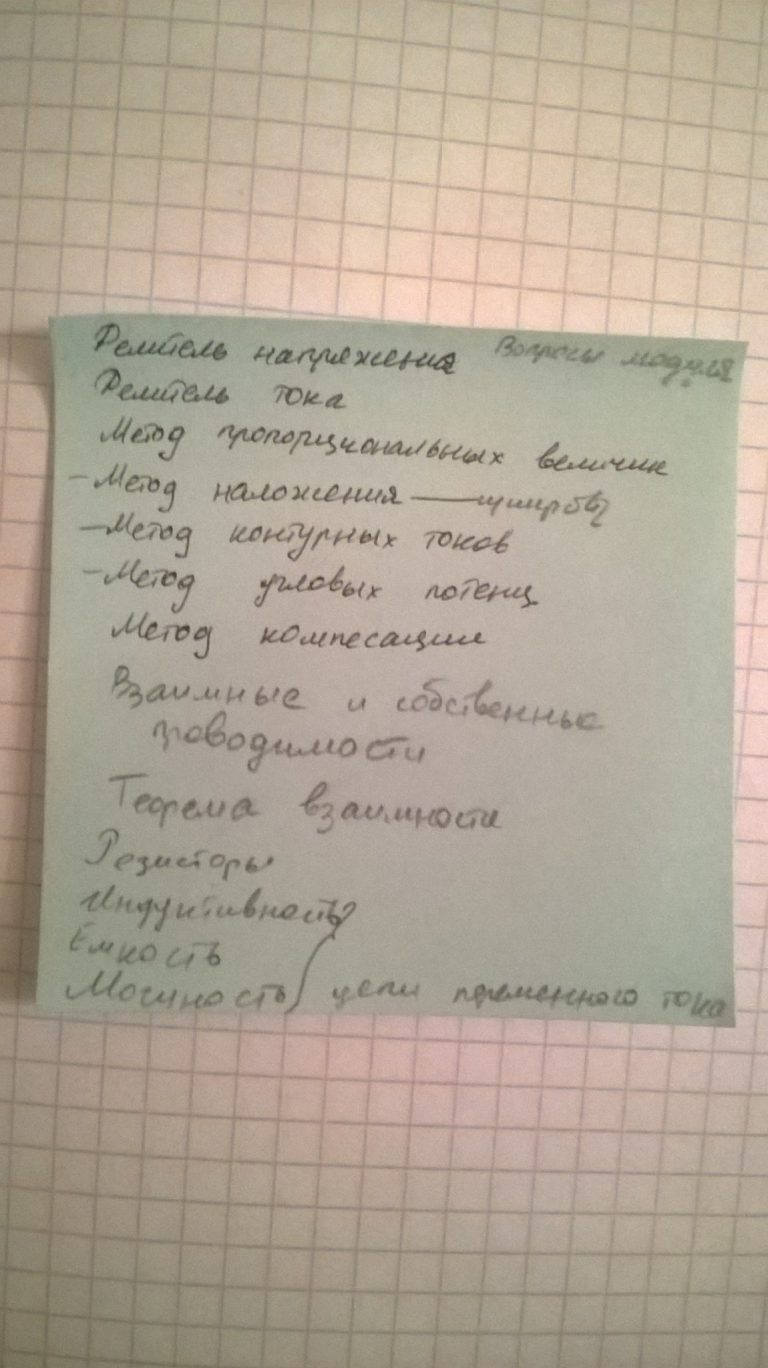 Делитель напряжения Вопросы модуля
Делитель тока
Метод пропорциональных величин
- Метод наложения —
- Метод контурных токов
- Метод узловых потенц
Метод компесации
Взаимные и собственные
проводимости
Теорема взаимности
Резисторы
Индуктивность
Емкость
Мощность) цепи переменного тока